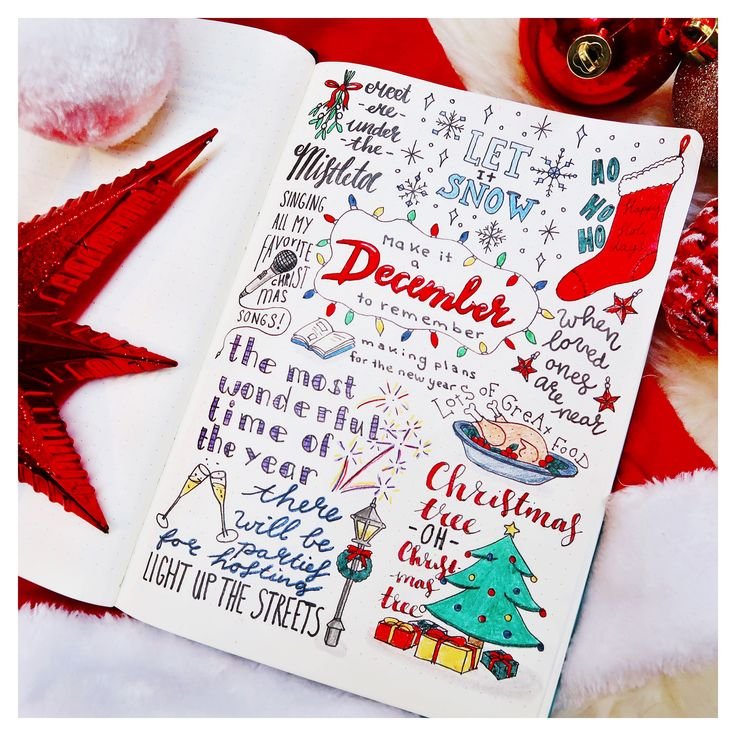 meet
-me-
under
-the-
Mistletoe
LET
it
SNOW
HO
HO
HO
Happy
holi
days!
SINGING
ALL MY
FAVORITE
CHRIST
MAS
SONGS!
Make it
a
December
to remember
making plans
for the new year
when
loved
ones
are near
LOTS OF GREAT FOOD
the most
wonderful
time of
the year
there
will be
parties
for hosting
LIGHT UP THE STREETS
Christmas
tree
-OH-
Christ
-mas
tree